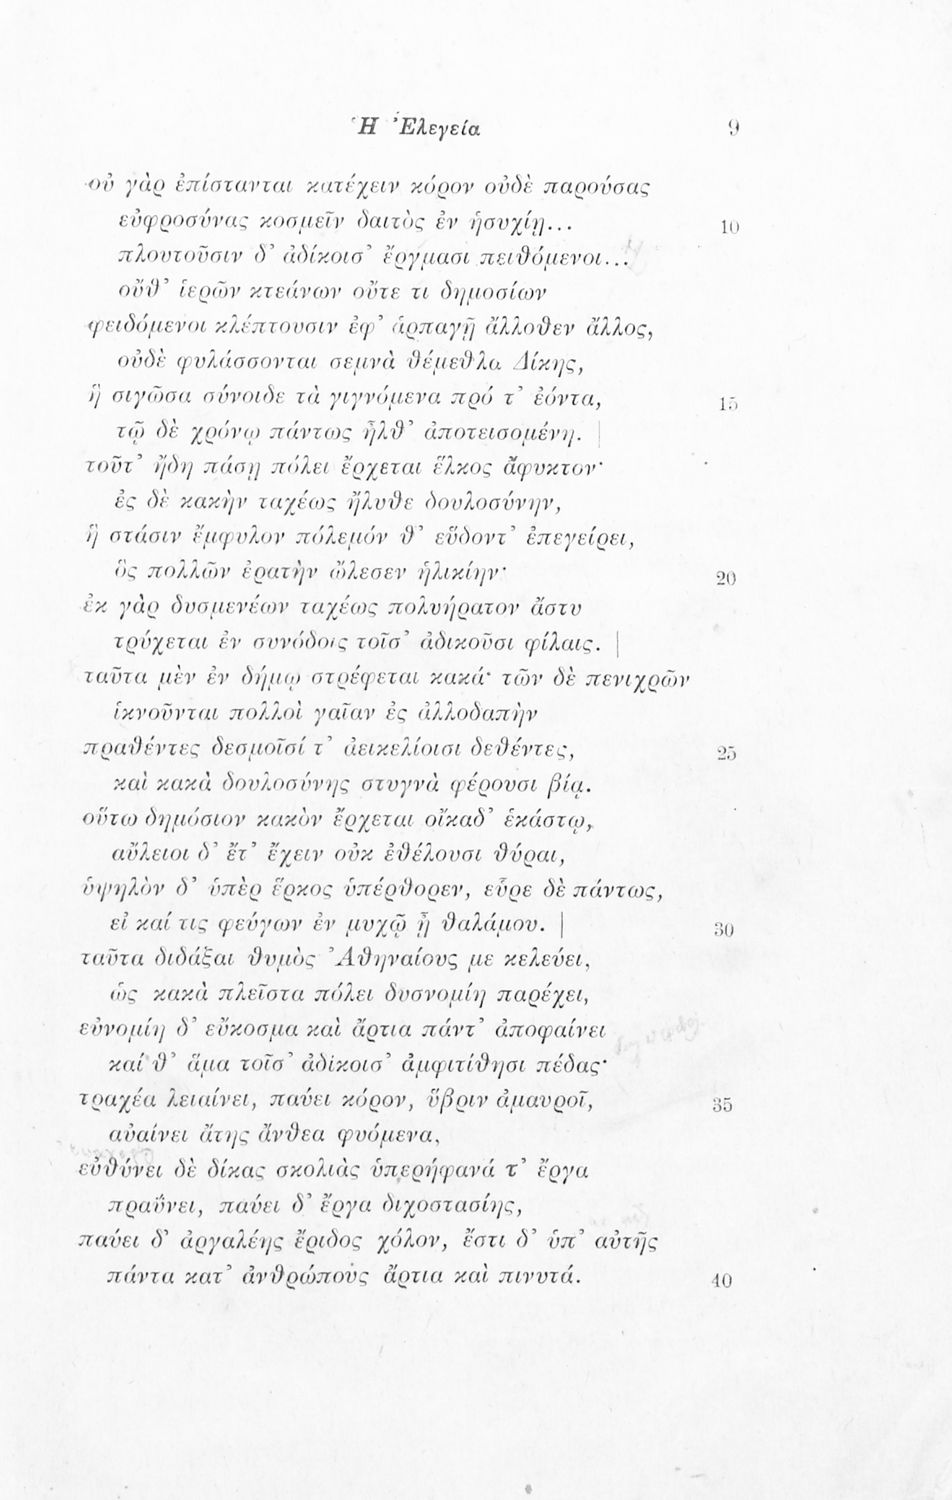 Ἡ Ἐλεγεία 9
οὐ γὰρ ἐπίστανται κατέχειν κόρον οὐδὲ παρούσας
εὐφροσύνας κοσμεῖν δαιτὸς ἐν ἡσυχίῃ... 10
πλουτοῦσιν δ’ ἀδίκοισ’ ἔργμασι πειθόμενοι...
οὔθ’ ἱερῶν κτεάνων οὔτε τι δημοσίων
φειδόμενοι κλέπτουσιν ἐφ’ ἁρπαγῇ ἄλλοθεν ἄλλος,
οὐδὲ φυλάσσονται σεμνὰ θέμεθλα Δίκης,
ἣ σιγῶσα σύνοιδε τὰ γιγνόμενα πρό τ’ ἐόντα, 15
τῷ δὲ χρόνῳ πάντως ἦλθ’ ἀποτεισομένη. |
τοῦτ’ ἤδη πάσῃ πόλει ἔρχεται ἕλκος ἄφυκτον·
ἐς δὲ κακὴν ταχέως ἤλυθε δουλοσύνην,
ἣ στάσιν ἔμφυλον πόλεμόν θ’ εὕδοντ’ ἐπεγείρει,
ὃς πολλῶν ἐρατὴν ὤλεσεν ἡλικίην· 20
ἐκ γὰρ δυσμενέων ταχέως πολυήρατον ἄστυ
τρύχεται ἐν συνόδοις τοῖσ’ ἀδικοῦσι φίλαις. |
ταῦτα μὲν ἐν δήμῳ στρέφεται κακά· τῶν δὲ πενιχρῶν
ἱκνοῦνται πολλοὶ γαῖαν ἐς ἀλλοδαπὴν
πραθέντες δεσμοῖσί τ’ ἀεικελίοισι δεθέντες, 25
καὶ κακὰ δουλοσύνης στυγνὰ φέρουσι βίᾳ.
οὕτω δημόσιον κακὸν ἔρχεται οἴκαδ’ ἑκάστῳ,
αὔλειοι δ’ ἔτ’ ἔχειν οὐκ ἐθέλουσι θύραι,
ὑψηλὸν δ’ ὑπὲρ ἕρκος ὑπέρθορεν, εὗρε δὲ πάντως,
εἰ καί τις φεύγων ἐν μυχῷ ᾖ θαλάμου. | 30
ταῦτα διδάξαι θυμὸς Ἀθηναίους με κελεύει,
ὡς κακὰ πλεῖστα πόλει δυσνομίη παρέχει,
εὐνομίη δ’ εὔκοσμα καὶ ἄρτια πάντ’ ἀποφαίνει
καί θ’ ἅμα τοῖσ’ ἀδίκοισ’ ἀμφιτίθησι πέδας·
τραχέα λειαίνει, παύει κόρον, ὕβριν ἀμαυροῖ, 35
αὐαίνει ἄτης ἄνθεα φυόμενα,
εὐθύνει δὲ δίκας σκολιὰς ὑπερήφανά τ’ ἔργα
πραΰνει, παύει δ’ ἔργα διχοστασίης,
παύει δ’ ἀργαλέης ἔριδος χόλον, ἔστι δ’ ὑπ’ αὐτῆς
πάντα κατ’ ἀνθρώπους ἄρτια καὶ πινυτά. 40